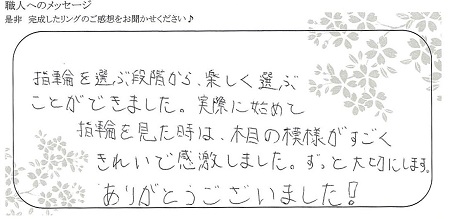 職人へのメッセージ
是非 完成したリングのご感想をお聞かせください♪
指輪を選ぶ段階から、楽しく選ぶ
ことができました。実際に始めて
指輪を見た時は、木目の模様がすごく
きれいで感激しました。ずっと大切にします。
ありがとうございました!